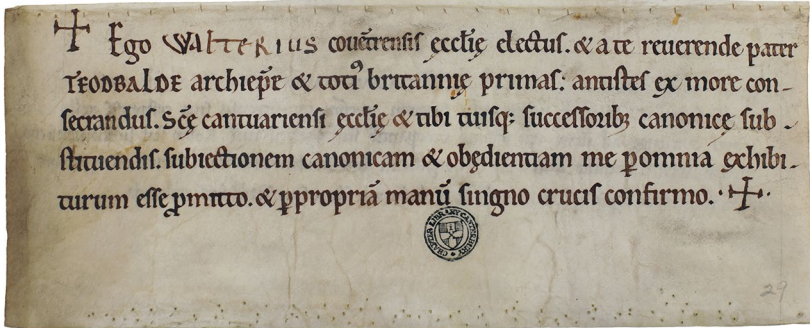 ✝ Ego WALTERIUS covētrensis ęcclię electus. & a te reverende pater
TEODBALDE archiep̄e & toti᾽ britannię primas: antistes ex more con-
secrandus. Scę̄ cantuariensi ęcclię & tibi tuisq; successorib; canonicę sub-
stituendis. subiectionem canonicam & obędientiam me ꝑ omnia exhibi-
turum esse ꝓmitto. & ꝑ propriā manū singno crucis confirmo. · ✝ ·
CHAPTER LIBRARY CANTERBURY
29